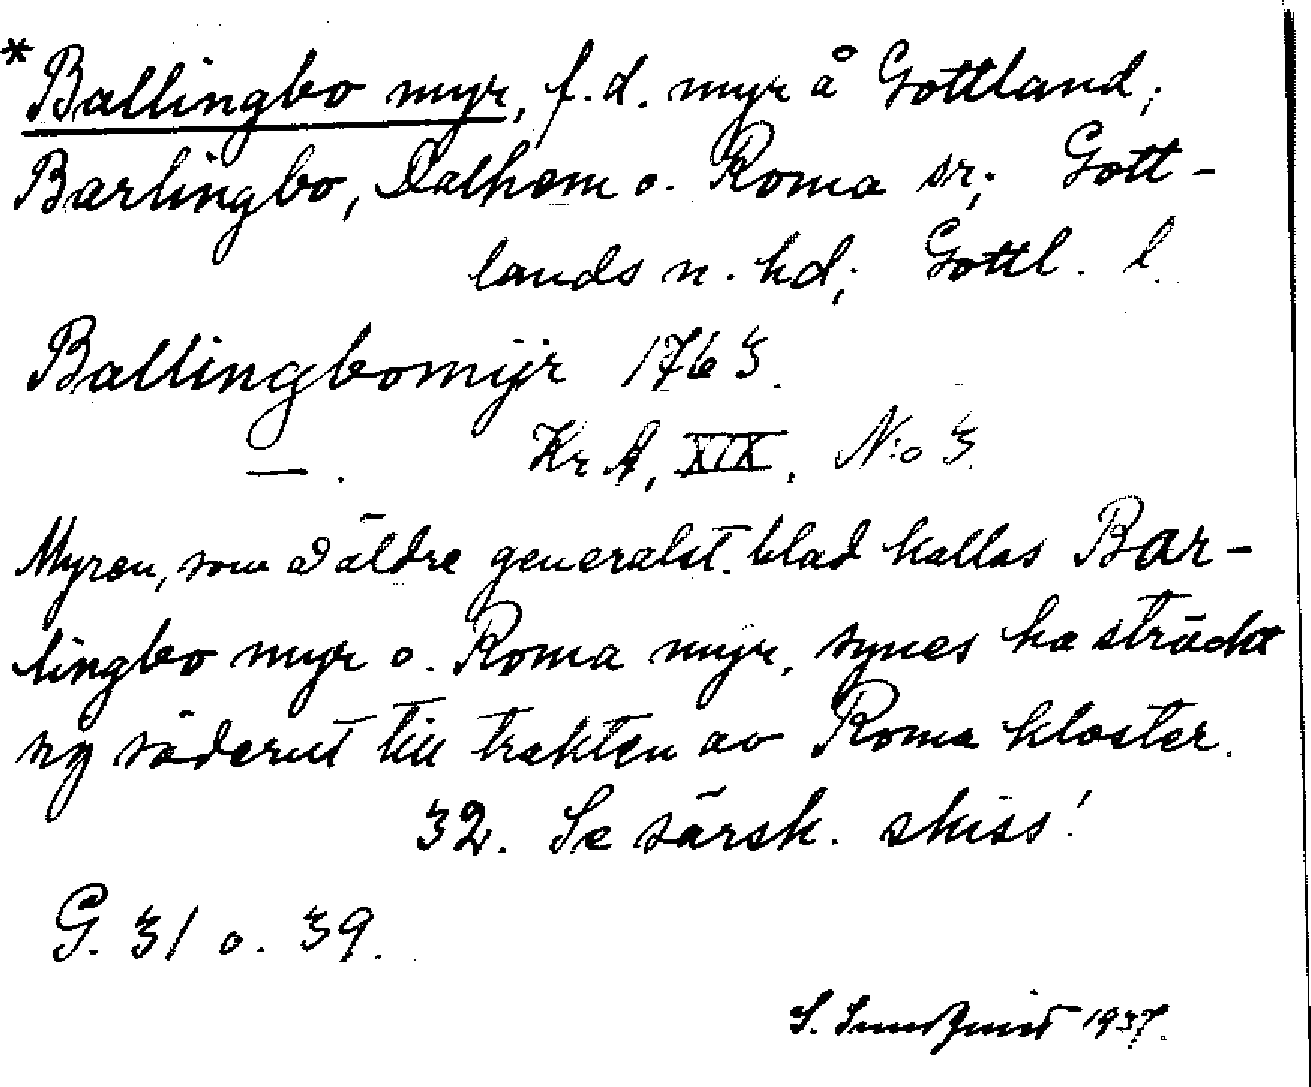 *Ballingbo myr, f.d. myr å Gottland;
Barlingbo, Dalhem o. Roma sr; Gott-
lands n. hd; Gottl. l.
Ballingbomÿr 1763.
—. KrA, XIX, N:o 3.
Myren, som å äldre generalst. blad kallas Bar-
lingbo myr o. Roma myr, synes ha sträckt
sig söderut till trakten av Roma kloster.
32. Se särsk. skiss!
G. 31 o. 39.
S. Sundquist 1937.